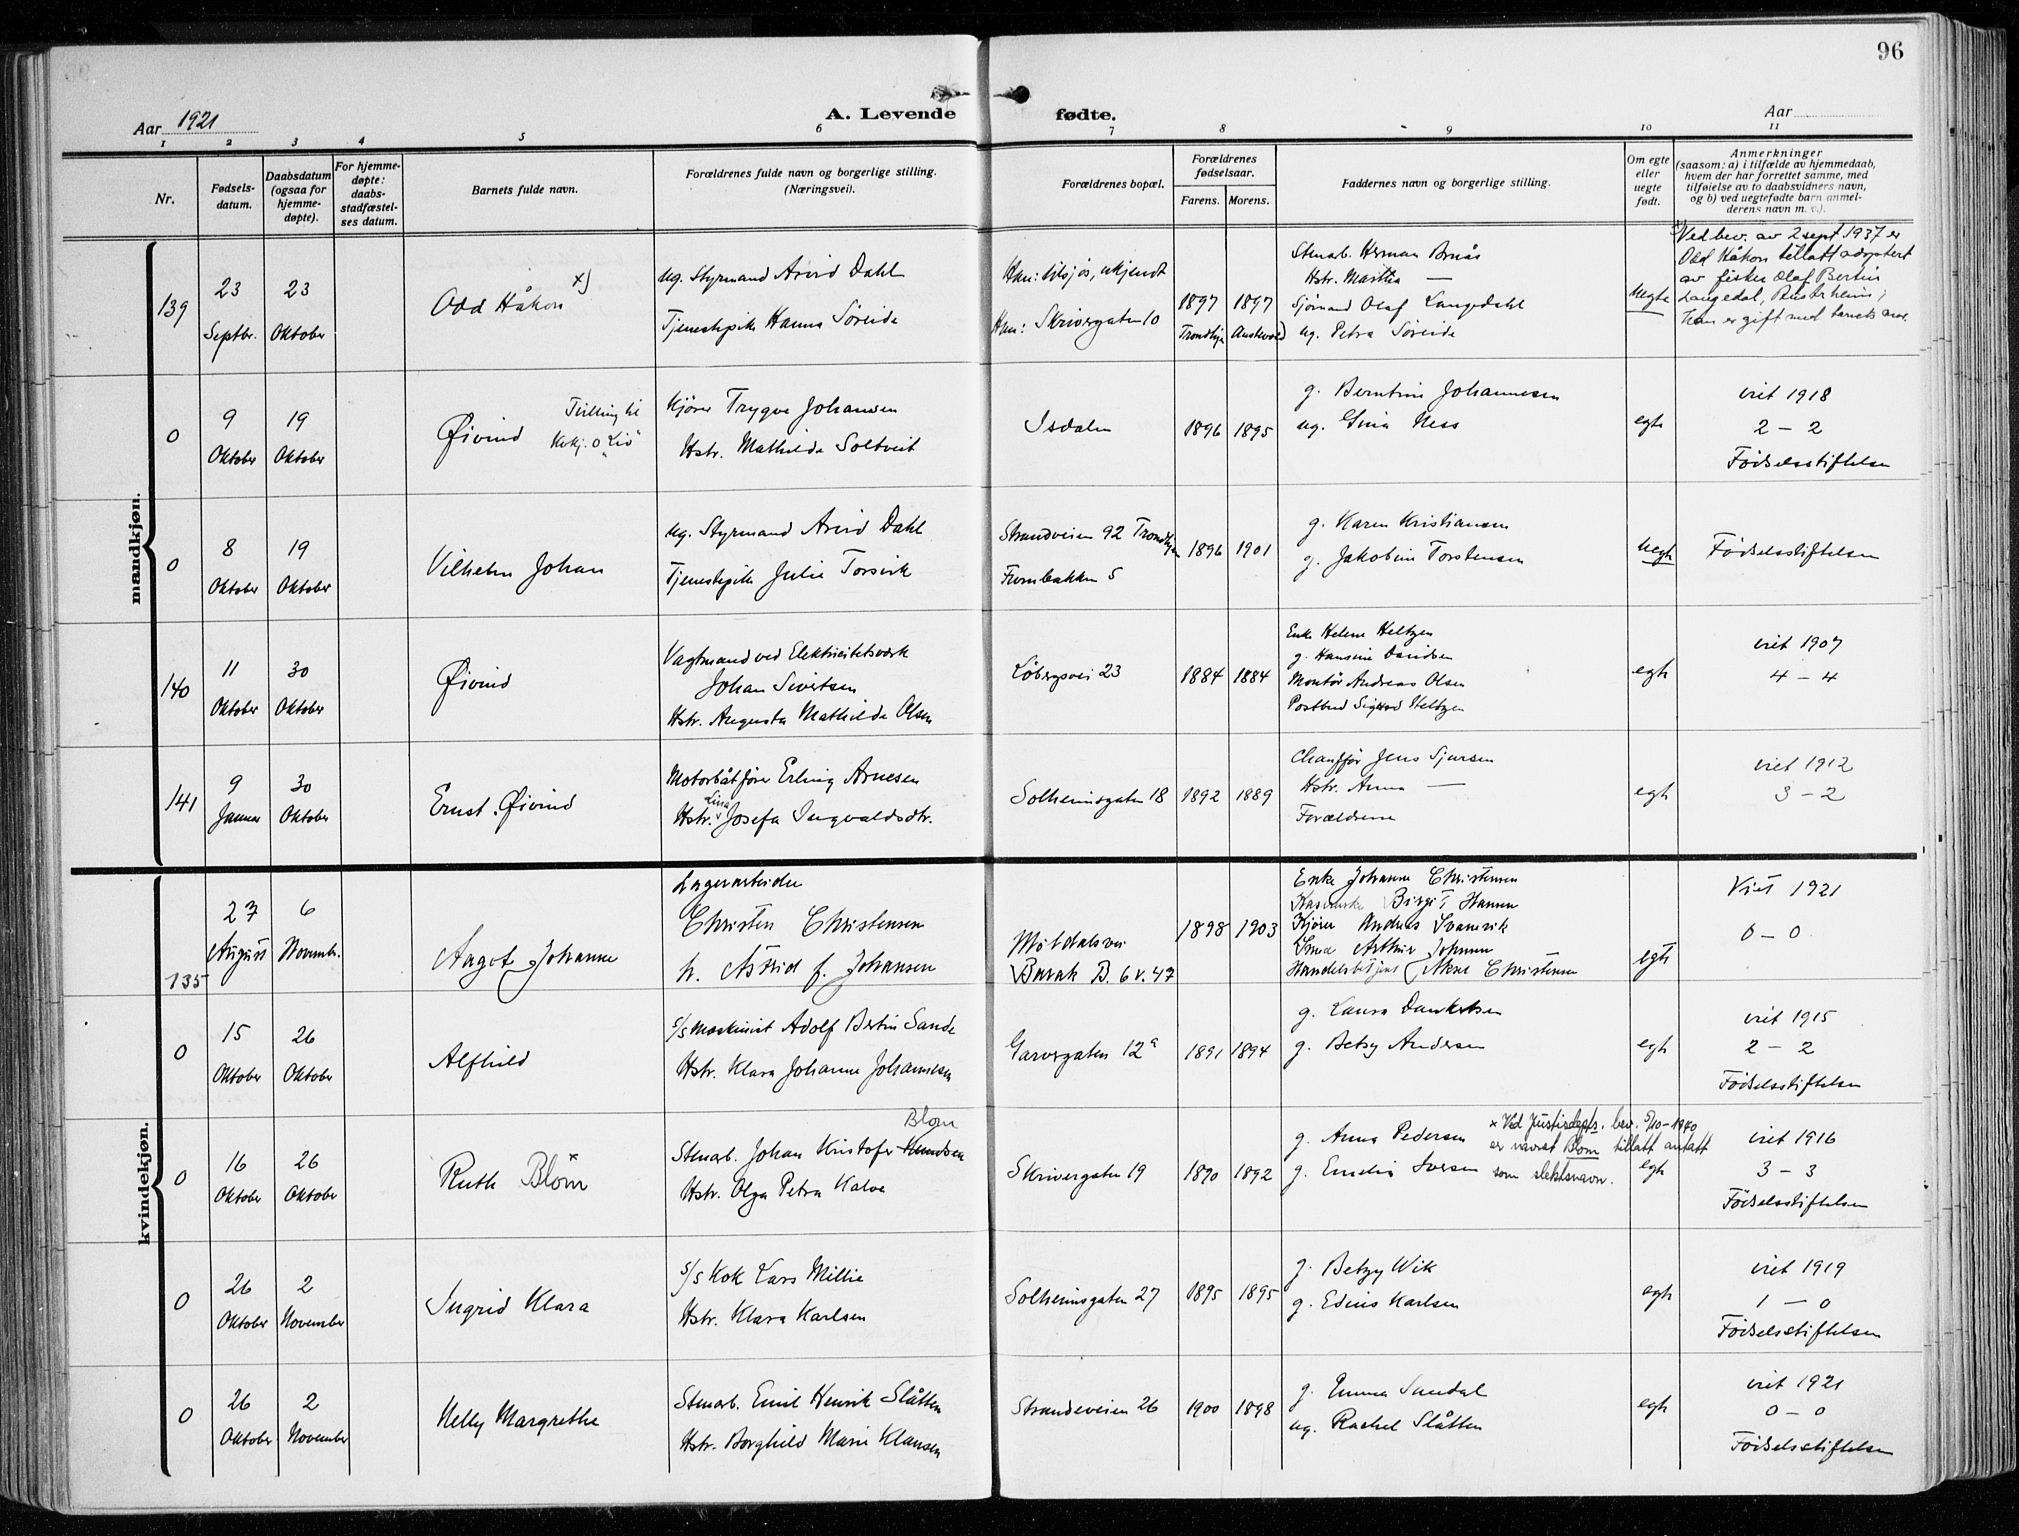 96
Aar 1921
A. Levende fødte.
Aar
1 2 3 4 5 6 7 8 9 10 11
Nr.
Fødsels-
datum.
Daabsdatum
(ogsaa for
hjemme-
døpte).
For hjemme-
døpte:
daabs-
stadfæstel-
ses datum.
Barnets fulde navn.
Forældrenes fulde navn og borgerlige stilling.
(Næringsvei).
Forældrenes bopæl.
Forældrenes
fødselsaar.
Farens. Morens.
Faddernes navn og borgerlige stilling.
Om egte
eller
uegte
født.
Anmerkninger
(saasom: a) i tilfælde av hjemmedaab,
hvem der har forrettet samme, med
tilføielse av to daabsvidners navn,
og b) ved uegtefødte barn anmel-
derens navn m. v.).
mandkjøn.
139
23
Septbr.
23
Oktober
Odd Håkon x)
ug. Styrmand Arvid Dahl
Tjenestepike Hanna Søreide
Han: tilsjøs, ukjendt
Hun: Skivergaten 10
1897
Trondhjem
1897
Austevold
Stenarb. Herman Bruås
Hstr. Martha —
Sjømand Olaf Langedahl
ug. Petra Søreide
Uegte
x) Ved bev. av 2 sept 1937 er
Odd Håkon tillatt adoptert
av fisker Olaf Bertin
Langedal, Austrheim;
han er gift med barnets mor.
0
9
Oktober
19
Oktober
Øivind
Tvilling til
Kvkj. 0 "Liv"
Kjører Trygve Johansen
Hstr. Mathilde Soltveit
Isdalen
1896 1895
g. Berntine Johannesen
ug. Gina Ness
egte
viet 1918
2 – 2
Fødselsstiftelsen
0
8
Oktober
19
Oktober
Vilhelm Johan
ug. Styrmand Arvid Dahl
Tjenestepike Julie Torsvik
Strandveien 92 Trondhjem
Furubakken 5
1896 1901
g. Karen Kristiansen
g. Jakobine Torstensen
Uegte
Fødselsstiftelsen
140
11
Oktober
30
Oktober
Øivind
Vagtmand ved Elektricitetsverk
Johan Sivertsen
Hstr. Augusta Mathilde Olsen
Løbergsvei 23
1884 1884
Enke Helene Heltzen
g. Hansine Davidsen
Montør Andreas Olsen
Postbud Sigurd Heltzen
egte
viet 1907
4 – 4
141
9
Januar
30
Oktober
Ernst Øivind
Motorbåtfører Erling Arnesen
Hstr. Lina Josefa Ingvaldsdtr.
Solheimsgaten 18
1892 1889
Chauffør Jens Sjursen
Hstr. Anna —
Forældrene
egte
viet 1912
3 – 2
kvindekjøn.
135
27
August
6
Novembr.
Aagot Johanne
Lagerarbeider
Christen Christensen
h. Astrid f. Johansen
Møldalsvei
Barak B. 6 v. 47
1898 1903
Enke Johanne Christensen
Birgit Hansen
Kjører Andreas Svanevik
Smed Arthur Johansen
Handelsbetjent Aksel Christensen
egte
Viet 1921
0 – 0
0
15
Oktober
26
Oktober
Alfhild
s/s Maskinist Adolf Bertin Sande
Hstr. Klara Johanne Johannesen
Garvergaten 12a
1891 1894
g. Laura Dankertsen
g. Betsy Andersen
egte
viet 1915
2 – 2
Fødselsstiftelsen
0
16
Oktober
26
Oktober
Ruth Blom x
Blom
Stenarb. Johan Kristofer Knudsen
Hstr. Olga Petra Kalve
Skivergaten 19
1890 1892
g. Anna Pedersen
g. Emilia Iversen
x Ved Justisdepts. bev. 5/10-1940
er navnet Blom tillatt antatt
som slektsnavn.
egte
viet 1916
3 – 3
Fødselsstiftelsen
0
26
Oktober
2
November
Ingrid Klara
s/s Kok Lars Millie
Hstr. Klara Karlsen
Solheimsgaten 27
1895 1895
g. Betzy Wik
g. Edius Karlsen
egte
viet 1919
1 – 0
Fødselsstiftelsen
0
26
Oktober
2
November
Nelly Margrethe
Stenarb. Emil Henrik Slåtten
Hstr. Borghild Marie Klausen
Strandeveien 26
1900 1898
g. Emma Sundal
ug. Rachel Slåtten
egte
viet 1921
0 – 0
Fødselsstiftelsen